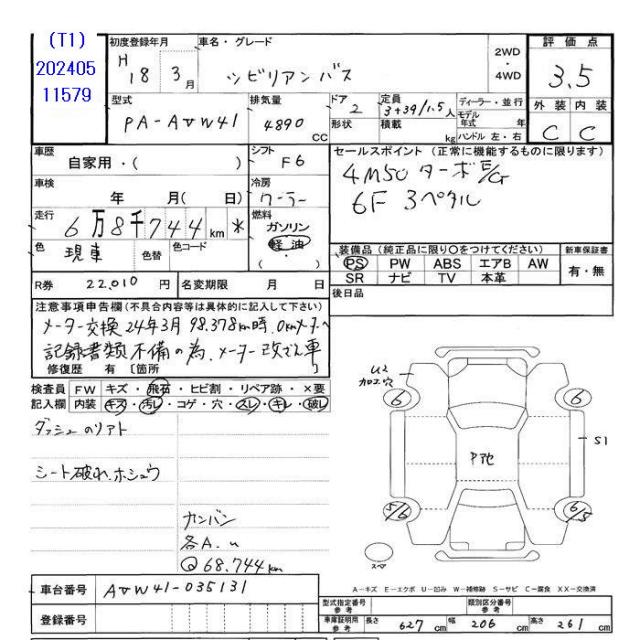 (T1)
202405
11579
初度登録年月
H 18 3 月
車名・グレード
シビリアンバス
2WD
・
4WD
評価点
3.5
型式
PA-AVW41
排気量
4890 cc
ドア
2
定員
3+39/1.5 人
形状
積載 kg
ディーラー・並行
モデル年式 年
ハンドル 左・右
外装 内装
C C
車歴
自家用・( )
シフト
F6
車検
年 月( 日)
冷房
クーラー
走行
6万8千744 km *
燃料
ガソリン
軽油
( )
色
現車
色替
色コード
セールスポイント (正常に機能するものに限ります)
4M50 ターボ E/G
6F 3ペダル
装備品(純正品に限り〇をつけてください)
新車保証書
PS PW ABS エアB AW
SR ナビ TV 本革
有・無
R券 22,010 円
名変期限 月 日
後日品
注意事項申告欄(不具合内容等は具体的に記入して下さい)
メーター交換 24年3月 98,378km時、0kmメーターへ
記録書類不備の為、メーター改ざん車
修復歴 有 〔箇所
検査員 FW キズ・飛石・ヒビ割・リペア跡・×要
記入欄 内装 キズ・汚レ・コゲ・穴・スレ・キレ・破レ
シート破れ、ホシュウ
カンバン
各A.u
Q 68,744km
U2
加工穴
6
6
S1
P他
5/6
6/5
スペア
A-キズ E-エクボ U-凹み W-補修跡 S-サビ C-腐食 XX-交換済
車台番号 AVW41-035131
登録番号
型式指定番号 参考
類別区分番号 参考
車庫証明用 参考
長さ 627 cm
幅 206 cm
高さ 261 cm